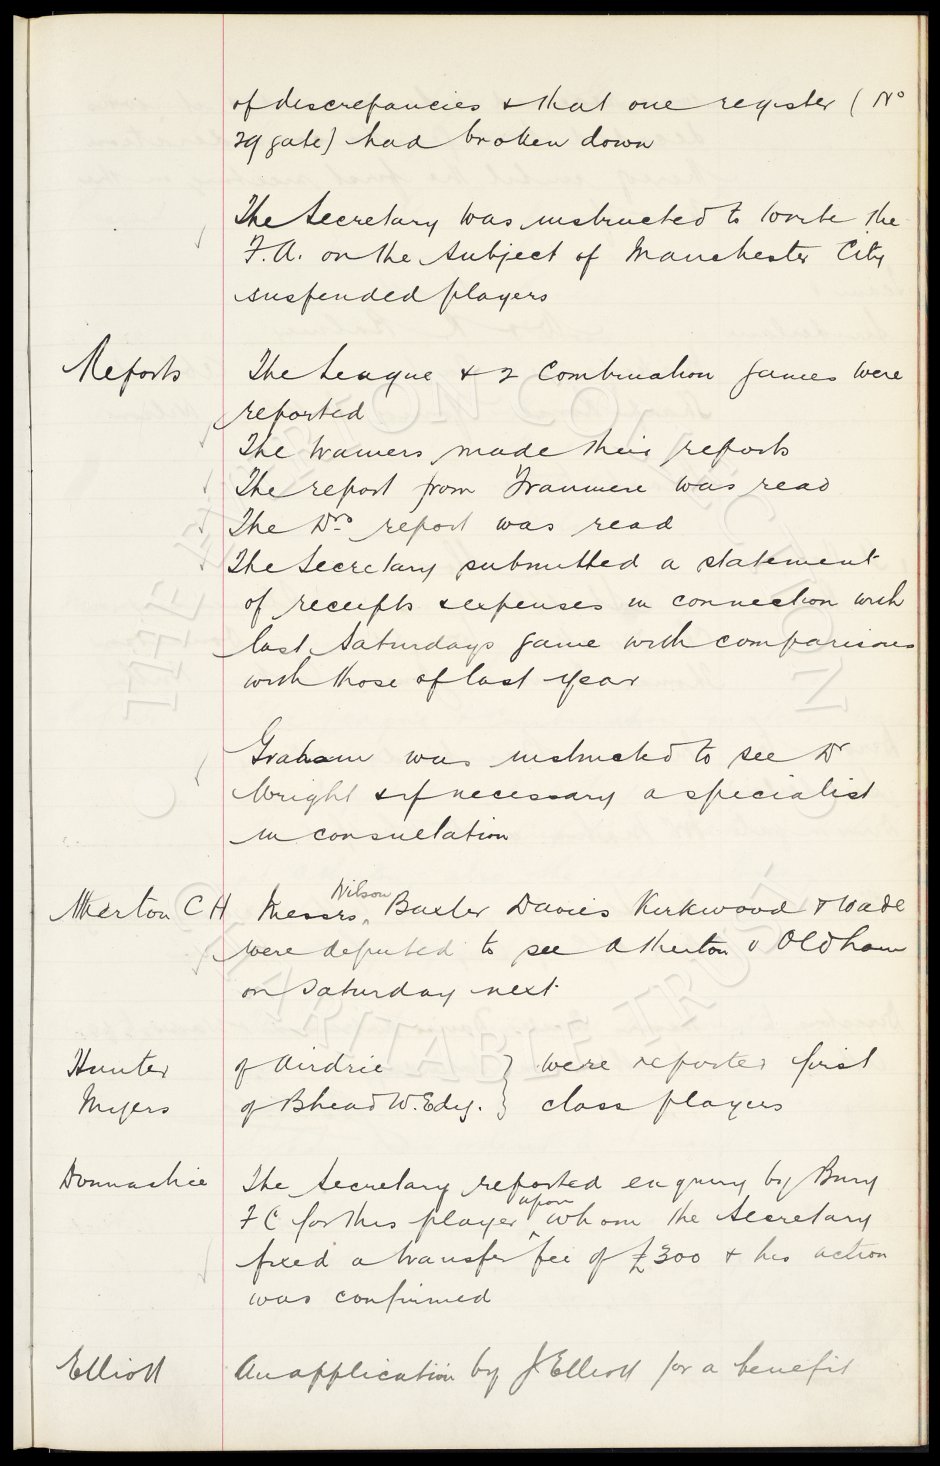 of discrepancies & that one register (No
29 gate) had broken down
The Secretary was instructed to write the
F.A. on the subject of Manchester City
suspended players
Reports The League & 2 Combination games were
reported
The trainers made their reports
The report from Tranmere was read
The Drs report was read
The Secretary submitted a statement
of receipts & expenses in connection with
last Saturdays game with comparisons
with those of last year
Graham was instructed to see Dr
Wright & if necessary a specialist
in consultation
Atherton C H Messrs Wilson Baxter Davies Kirkwood & Wade
were deputed to see Atherton v Oldham
on Saturday next
Hunter of Airdrie } were reported first
Myers of Bhead W. Edy. } class players
Donnachie The Secretary reported enquiry by Bury
F C for this player upon whom the Secretary
fixed a transfer fee of £300 & his action
was confirmed
Elliott An application by J. Elliott for a benefit